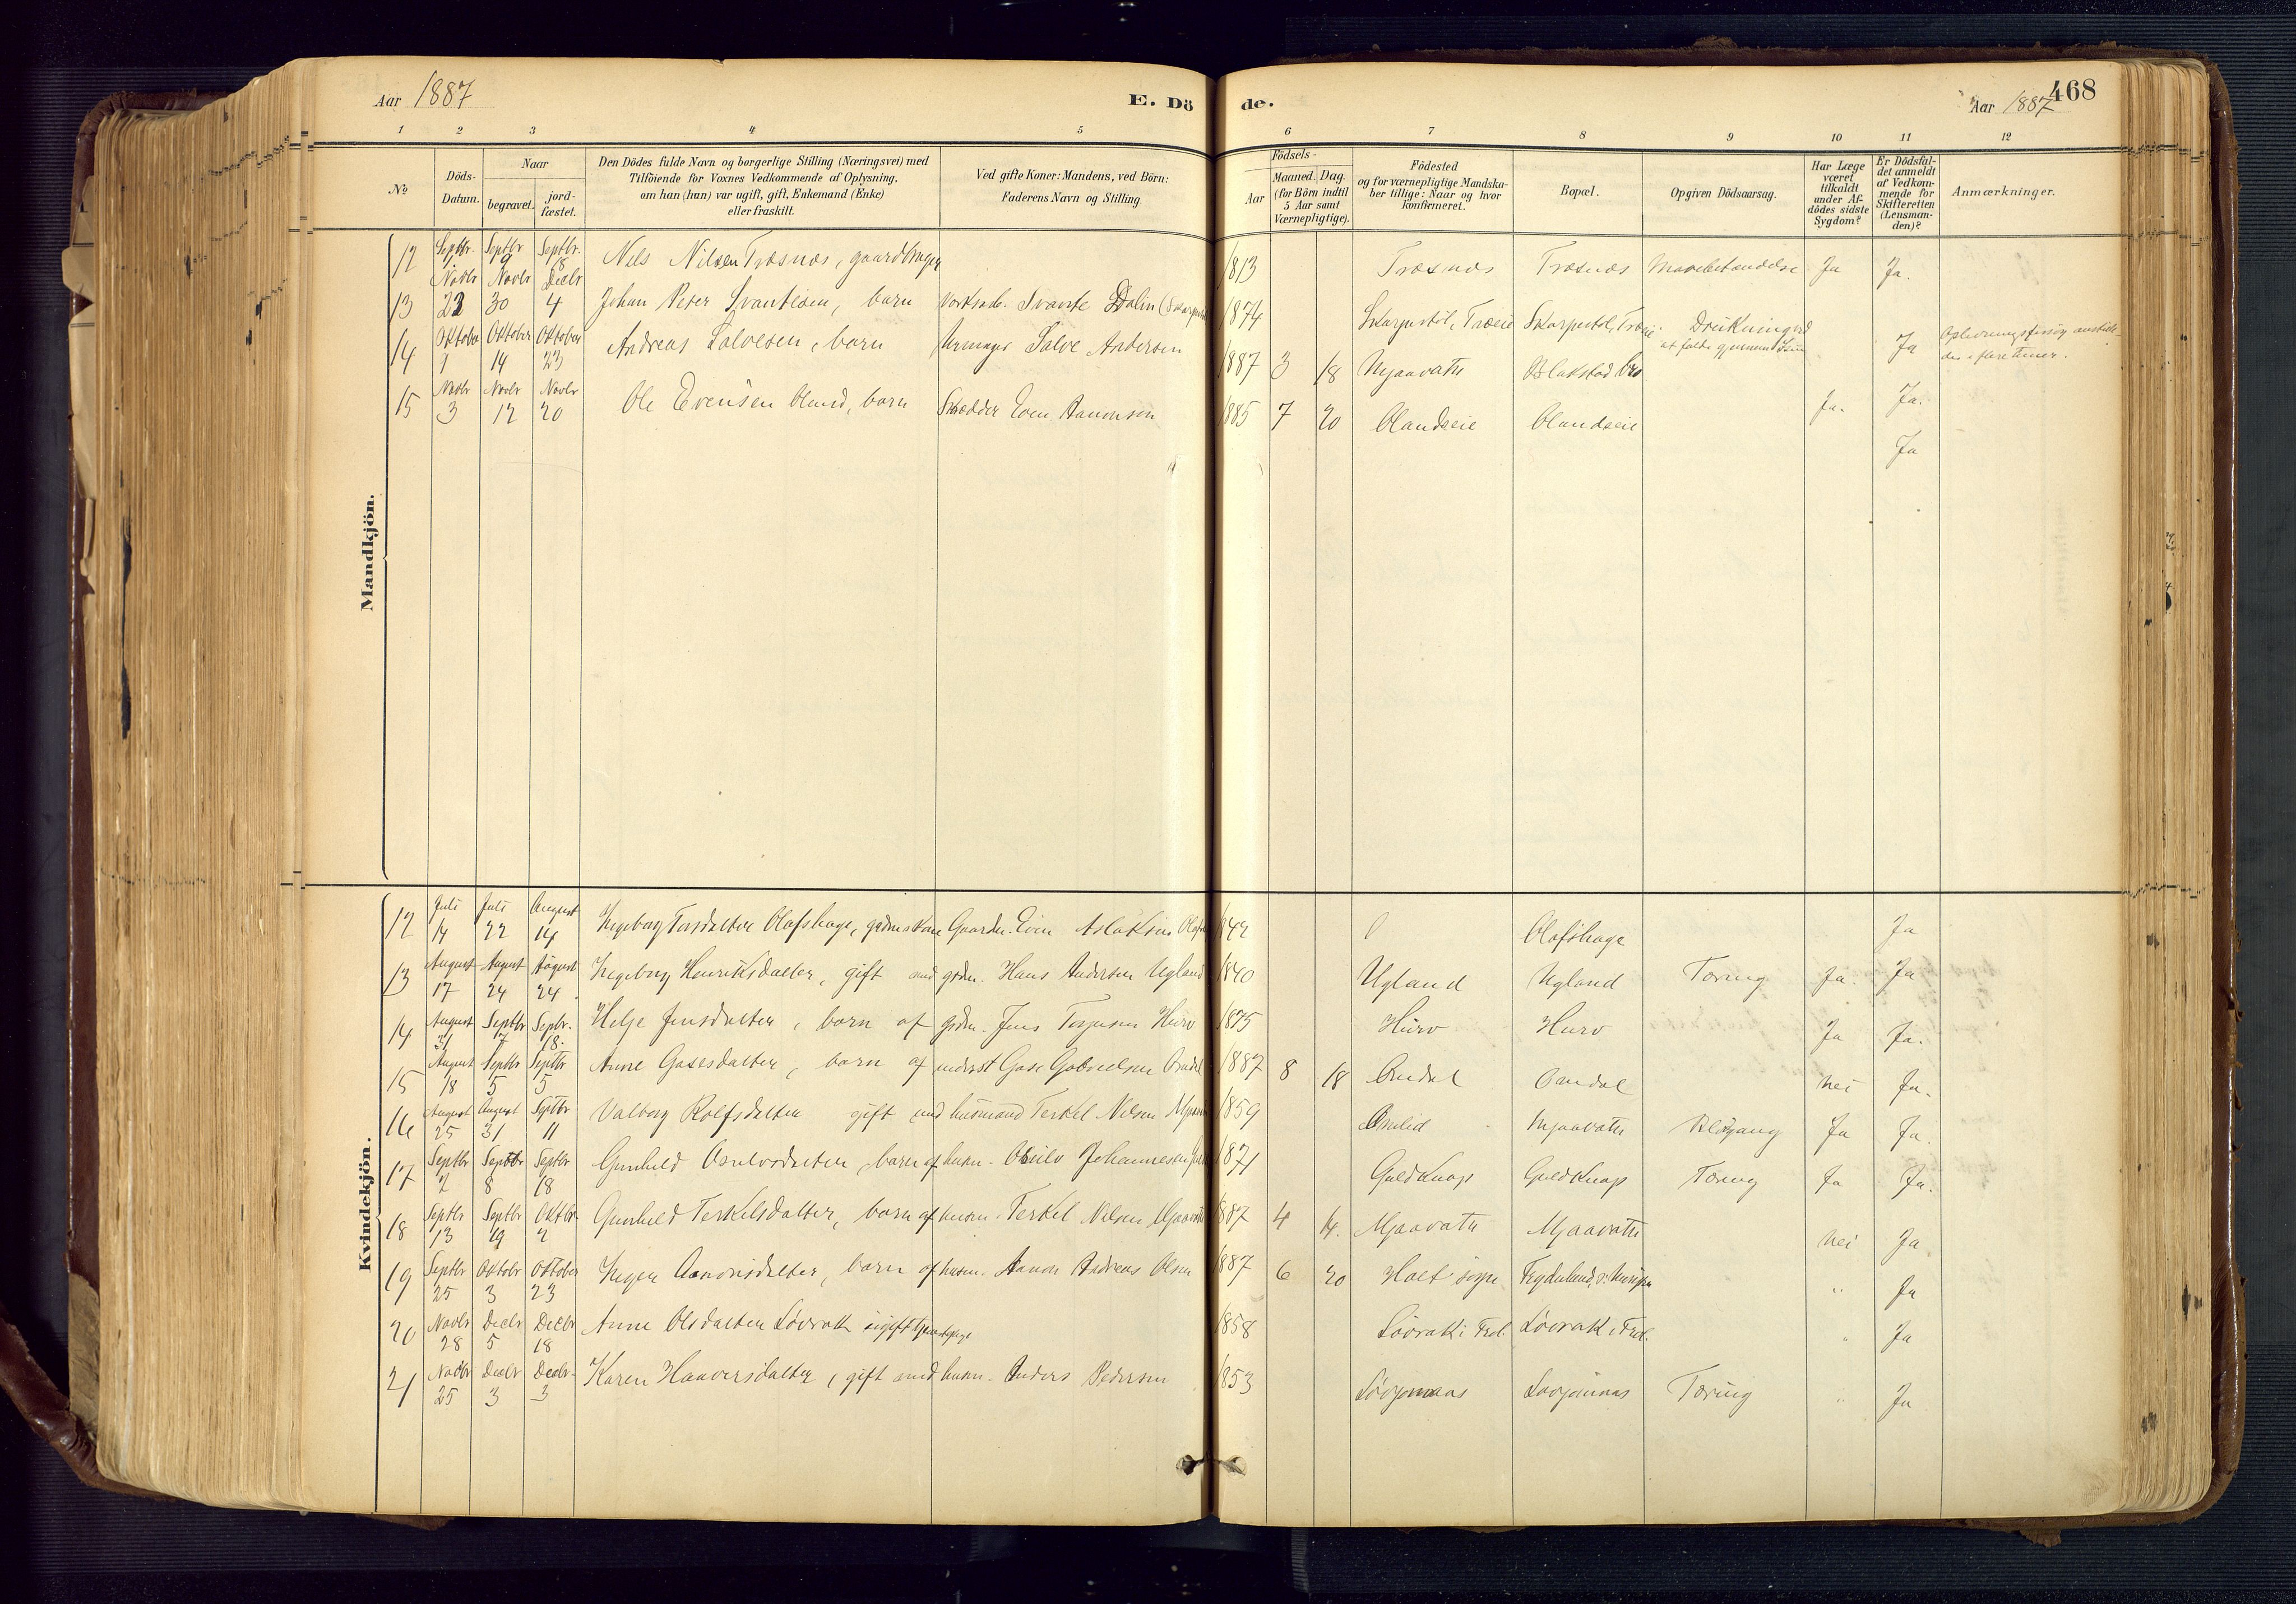 Aar 1887 E. Dö de. Aar 1887 468
1 2 3 4 5 6 7 8 9 10 11 12
No
Döds-
Datum.
Naar
begravet.
jord-
fæstet.
Den Dödes fulde Navn og borgerlige Stilling (Næringsvei) med
Tilföiende for Voxnes Vedkommende af Oplysning,
om han (hun) var ugift, gift, Enkemand (Enke)
eller fraskilt.
Ved gifte Koner: Mandens, ved Börn:
Faderens Navn og Stilling.
Födsels-
Aar
Maaned. Dag.
(for Börn indtil
5 Aar samt
Værnepligtige).
Födested
og for værnepligtige Mandska-
ber tillige: Naar og hvor
konfirmeret.
Bopæl.
Opgiven Dödsaarsag.
Har Læge
været
tilkaldt
under Af-
dödes sidste
Sygdom?
Er Dödsfal-
det anmeldt
af Vedkom-
mende for
Skifteretten
(Lensman-
den)?
Anmærkninger.
Mandkjön.
12 Septbr. 1 Septbr 9 Septbr. 18 Nels Nilsen Træsnæs, gaardbruger 1813 Træsnæs Træsnæs Mavebetændelse Ja Ja.
13 Novbr 22 Novbr 30 Decbr 4 Johan Peter Svantesen, barn Svante Dalin 1874 Skarpnstöl, Træeie Skarpnstöl, Træeie Drukning ved at falde gjennem Isen Ja
14 Oktober 1 Oktober 14 Oktober 23 Andreas Salvesen, barn Urmager Salve Andersen 1887 3 18 Mjaavatn Blakstad Bro Ja. Ja.
15 Novbr 3 Novbr 12 Novbr 20 Ole Evensen Oland, barn Skrædder Even Aanonsen 1885 7 20 Olandseie Olandseie Ja
Kvindekjön.
12 Juli 14 Juli 22 August 14 Ingeborg Tarsdatter Olafshage, Even Aslaksen 1842 Olafshage Ja
13 August 17 August 24 August 24. Ingeborg Henriksdatter, gift med grdm. Hans Andersen Ugland 1840 Ugland Ugland Tæring Ja. Ja
14 August 31 Septbr 7 Sepbr. 18. Helje Jensdatter, barn af grdm. Jens Terjesen Hurv 1875 Hurv Hurv Ja Ja.
15 August 18 Septbr 5 Septbr 5 Anne Gasesdatter, barn af inderst Gase Gabrielsen 1887 8 18 nei Ja.
16 August 25 August 31 Septbr 11 Valborg Rolfsdatter gift med husmand Terkel Nilsen 1859 Mjaavatn Blodgang Ja Ja.
17 Septbr 2 Septbr 8 Septbr 18 Gunhild Osulvsdatter, barn af husm. Osulv Johannesen 1871 Guldknap Guldknap Tæring Ja Ja.
18 Septbr 13 Septbr 19 Oktbr 2 Gunhild Terkelsdatter, barn af husm. Terkel Nilsen Mjaavatn 1887 4 14. Mjaavatn Mjaavatn nei Ja
19 Septbr 25 Oktobr 3 Oktober 23 Inger Aanonsdatter, barn af husm. Aanon Andreas Olsen 1887 6 20 Holt sogn " Ja
20 Novbr 28 Decbr 5 Decbr 18 Anne Olsdatter Lövrak ugift Tjenestepige 1858 Lövrak i Frol. Lövrak i Frol. " Ja
21 Novbr 25 Decbr 3 Decbr. 3 Karen Haaversdatter, gift med husm. Anders Pedersen 1853 Tæring " Ja